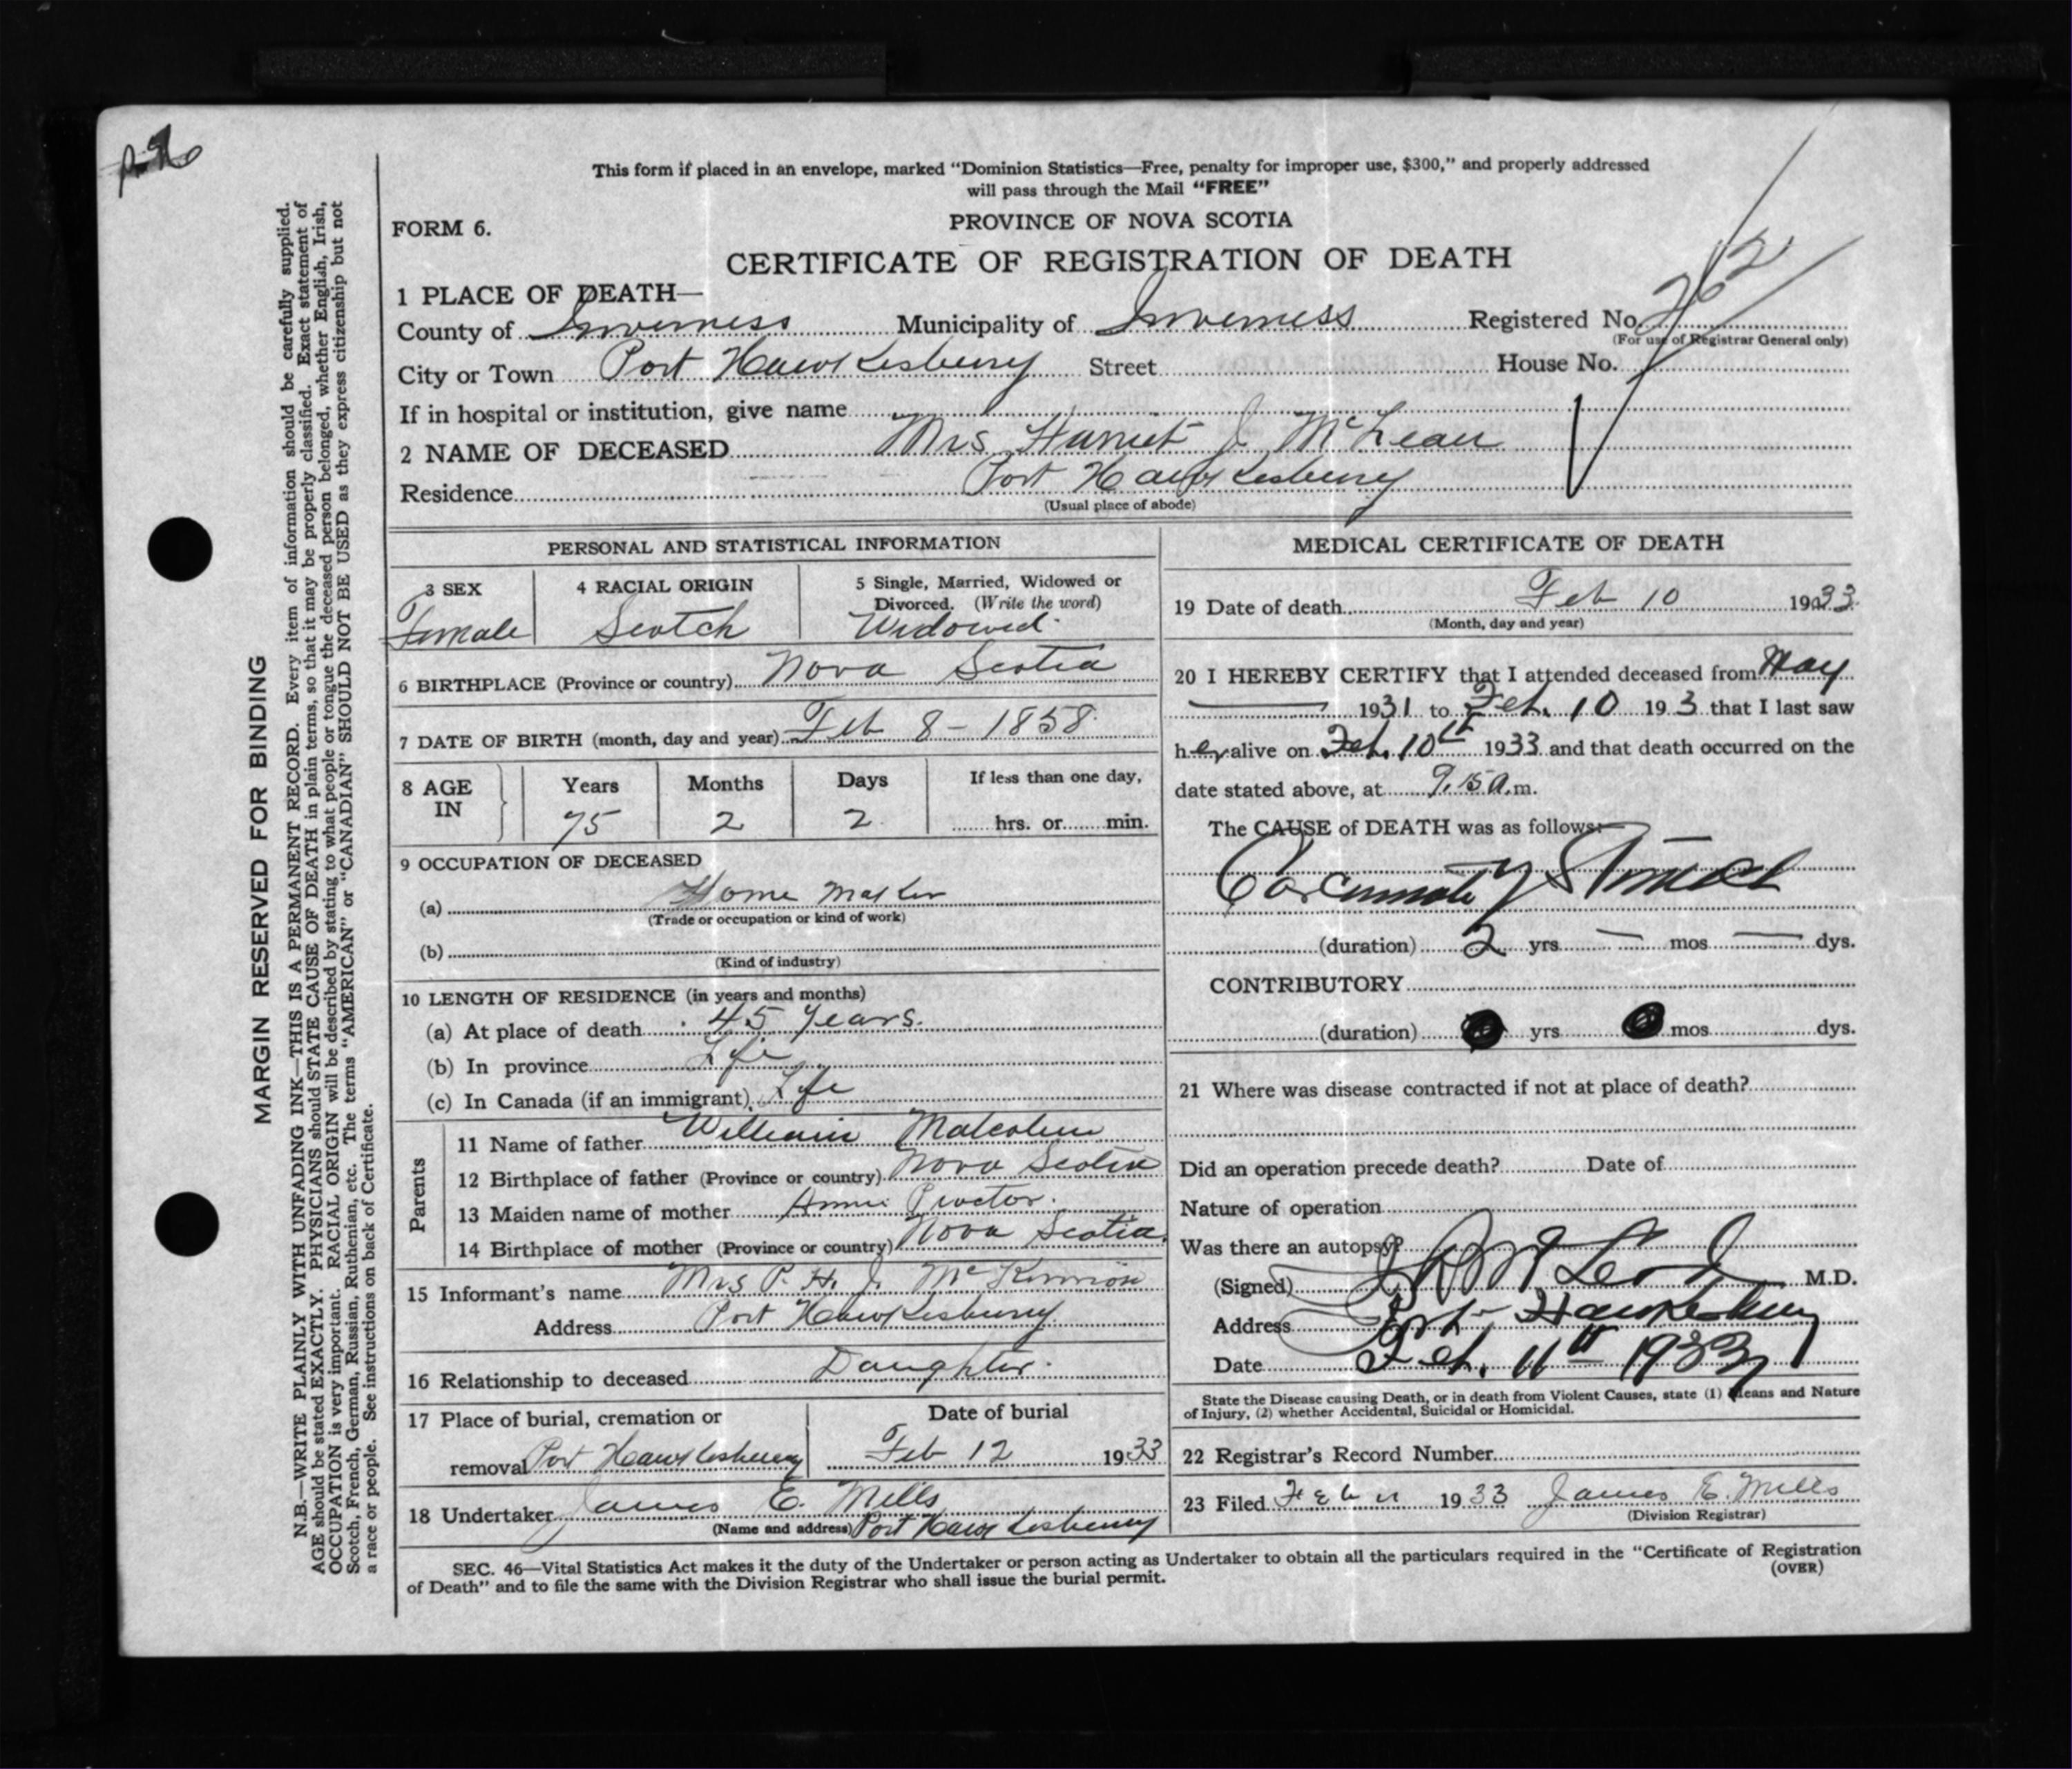 This form if placed in an envelope, marked “Dominion Statistics—Free, penalty for improper use, $300,” and properly addressed
will pass through the Mail “FREE”
FORM 6.
PROVINCE OF NOVA SCOTIA
CERTIFICATE OF REGISTRATION OF DEATH
1 PLACE OF DEATH—
County of Inverness Municipality of Inverness Registered No. 262
(For use of Registrar General only)
City or Town Port Hawkesbury Street House No.
If in hospital or institution, give name
2 NAME OF DECEASED Mrs Harriet J McLean
Residence Port Hawkesbury
(Usual place of abode)
PERSONAL AND STATISTICAL INFORMATION
3 SEX 4 RACIAL ORIGIN 5 Single, Married, Widowed or
Divorced. (Write the word)
Female Scotch Widowed
6 BIRTHPLACE (Province or country) Nova Scotia
7 DATE OF BIRTH (month, day and year) Feb 8 - 1858
8 AGE IN Years Months Days If less than one day,
75 2 2 hrs. or min.
9 OCCUPATION OF DECEASED
(a) Home maker
(Trade or occupation or kind of work)
(b)
(Kind of industry)
10 LENGTH OF RESIDENCE (in years and months)
(a) At place of death 45 years.
(b) In province Life
(c) In Canada (if an immigrant) Life
Parents
11 Name of father William Malcolm
12 Birthplace of father (Province or country) Nova Scotia
13 Maiden name of mother Annie Proctor.
14 Birthplace of mother (Province or country) Nova Scotia.
15 Informant's name Mrs P. H. J. McKinnon
Address Port Hawkesbury.
16 Relationship to deceased Daughter.
17 Place of burial, cremation or Date of burial
removal Port Hawkesbury Feb 12 1933
18 Undertaker James E. Mills
(Name and address) Port Hawkesbury
MEDICAL CERTIFICATE OF DEATH
19 Date of death Feb 10 1933.
(Month, day and year)
20 I HEREBY CERTIFY that I attended deceased from May
— 1931 to Feb. 10 193 that I last saw
her alive on Feb. 10th 1933 and that death occurred on the
date stated above, at 9.15 A.m.
The CAUSE of DEATH was as follows:—
(duration) 2 yrs — mos — dys.
CONTRIBUTORY
(duration) yrs mos dys.
21 Where was disease contracted if not at place of death?
Did an operation precede death? Date of
Nature of operation
Was there an autopsy?
(Signed) M.D.
Address Port Hawkesbury
Date Feb. 11th 1933
State the Disease causing Death, or in death from Violent Causes, state (1) Means and Nature
of Injury, (2) whether Accidental, Suicidal or Homicidal.
22 Registrar's Record Number
23 Filed Feb 11 1933 James E. Mills
(Division Registrar)
SEC. 46—Vital Statistics Act makes it the duty of the Undertaker or person acting as Undertaker to obtain all the particulars required in the “Certificate of Registration
of Death” and to file the same with the Division Registrar who shall issue the burial permit.
(OVER)
MARGIN RESERVED FOR BINDING
N.B.—WRITE PLAINLY WITH UNFADING INK—THIS IS A PERMANENT RECORD. Every item of information should be carefully supplied.
AGE should be stated EXACTLY. PHYSICIANS should STATE CAUSE OF DEATH in plain terms, so that it may be properly classified. Exact statement of
OCCUPATION is very important. RACIAL ORIGIN will be described by stating to what people or tongue the deceased person belonged, whether English, Irish,
Scotch, French, German, Russian, Ruthenian, etc. The terms “AMERICAN” or “CANADIAN” SHOULD NOT BE USED as they express citizenship but not
a race or people. See instructions on back of Certificate.